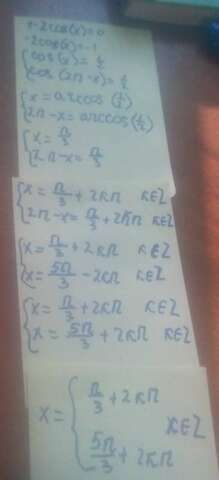 1-2cos(x)=0
-2cos(x)=-1
{cos(x)=1/2
{cos(2π-x)=1/2
{x=arccos(1/2)
{2π-x=arccos(1/2)
{x=π/3
{2π-x=π/3
{x=π/3+2kπ k∈Z
{2π-x=π/3+2kπ k∈Z
{x=π/3+2kπ k∈Z
{x=5π/3-2kπ k∈Z
{x=π/3+2kπ k∈Z
{x=5π/3+2kπ k∈Z
x={π/3+2kπ
k∈Z
5π/3+2kπ